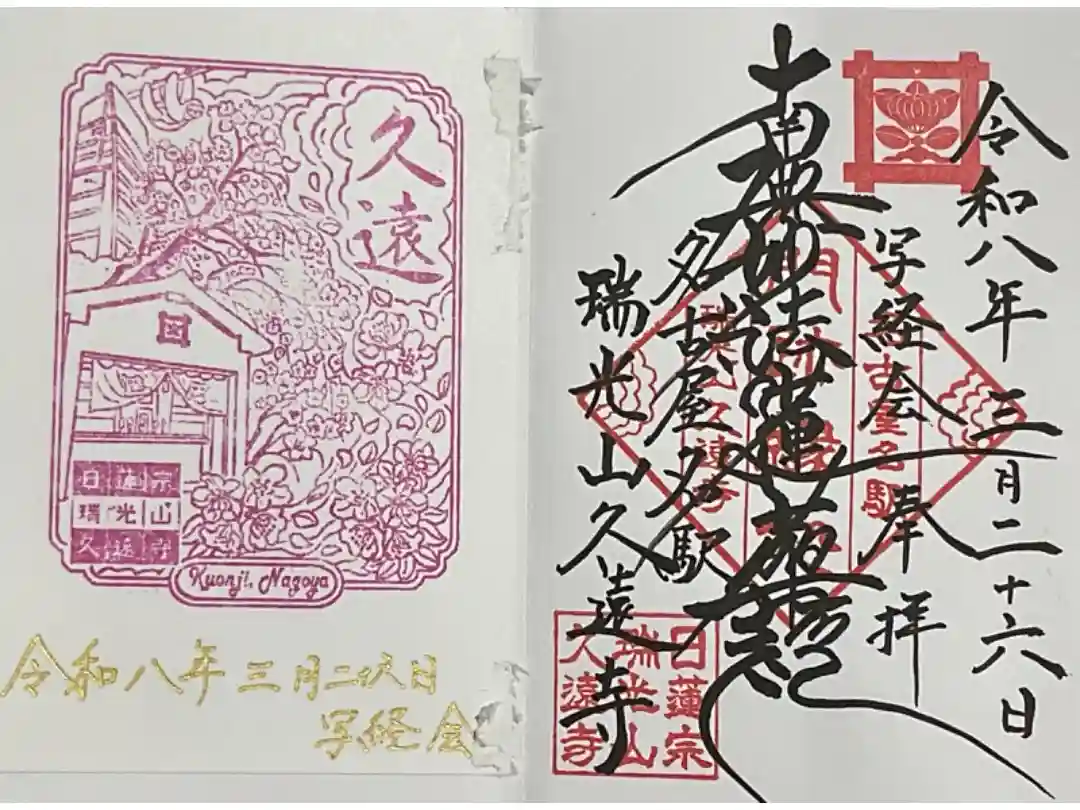 久遠
日蓮宗
瑞光山
久遠寺
Kuonji, Nagoya
令和八年三月二十六日
写経会
令和八年三月二十六日
写経会奉拝
南無妙法蓮華経
名古屋名駅
瑞光山久遠寺
日蓮宗
瑞光山
久遠寺